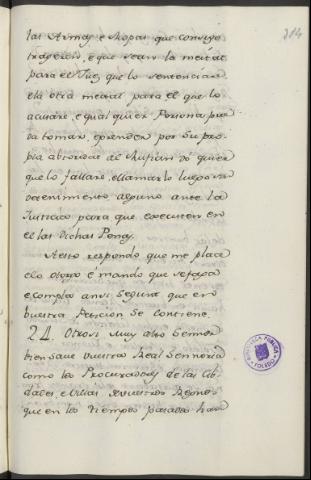 214
las Armas, e Ropas que consigo
trageren, e que sean la meitad
para el Juez que lo sentenciare
e la otra meitad para el que lo
acusare, e qualquier Persona pue
da tomar, e prender por Su pro-
pia abtoridad al Rufian do quier
que lo fallare, e llamarlo luego sin
detenimiento alguno ante la
Justicia para que executen en
el las dichas Penas.
A esto respondo que me place
e lo otorgo e mando que se faga
e cumpla ansi Segund que en
vuestra Peticion Se Contiene.
24. Otrosi Muy alto Sennor
bien Save vuestra Real Sennoria
como los Procuradores de las Cib-
dades, e Villas de vuestros Regnos
que en los tiempos pasados han
BIBLIOTECA PUBLICA
TOLEDO